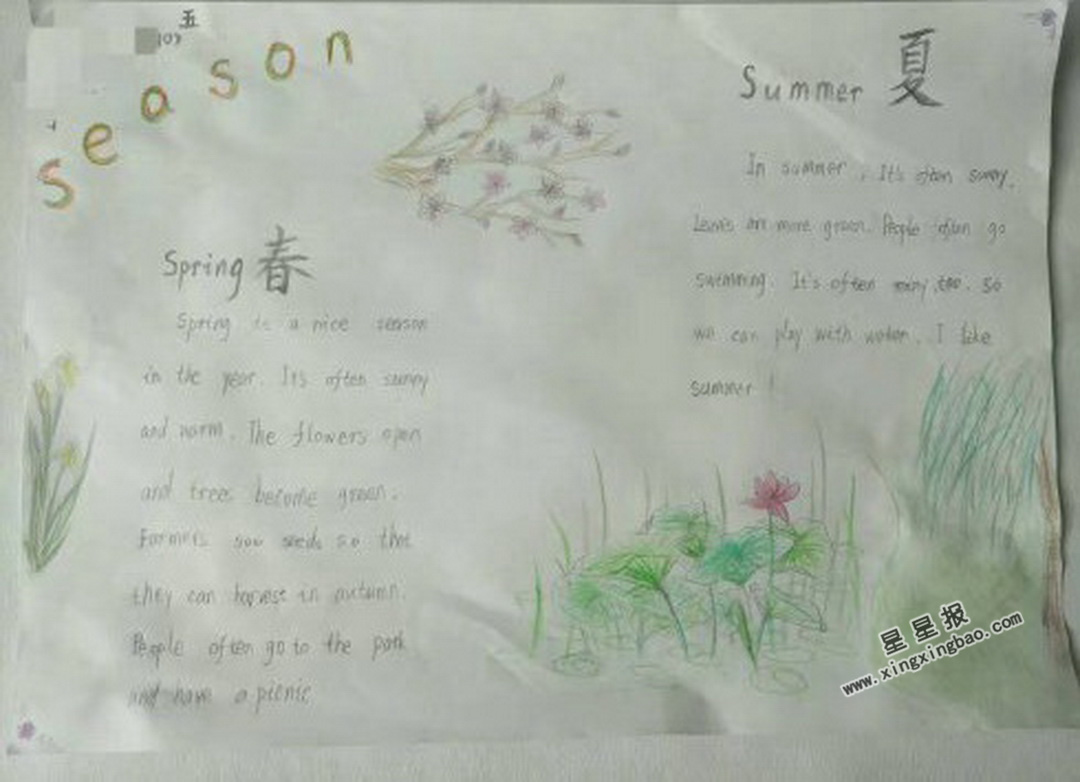 五
(0)
season
Spring 春
Spring is a nice season
in the year. Its often sunny
and warm. The flowers open
and trees become green.
Farmers sow seeds so that
they can harvest in autumn.
People often go to the park
and have a picnic.
Summer 夏
In summer, It's often sunny.
Leaves are more green. People often go
swimming. It's often rainy, too. So
we can play with water. I like
summer!
星星报
www.xingxingbao.com